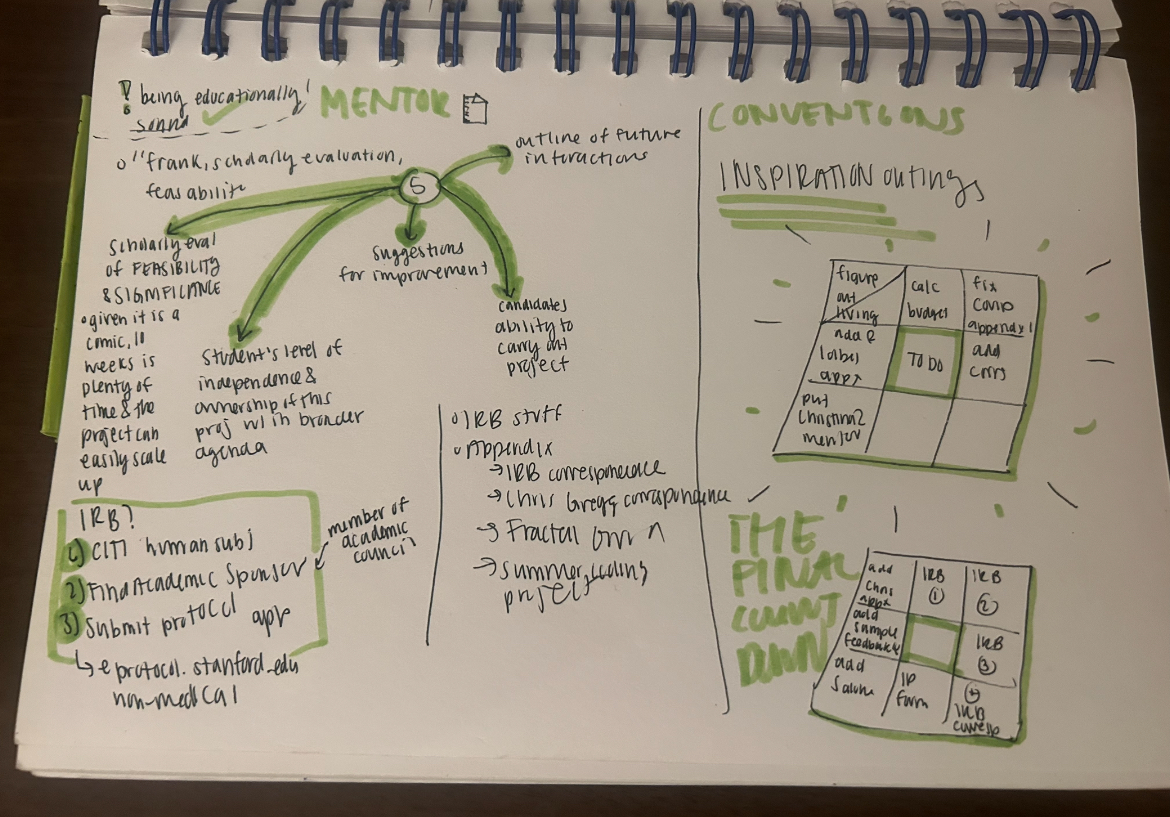 ! being educationally!
sound
MENTOR
o "frank, scholarly evaluation,
feasability
5
outline of future
interactions
Scholarly eval
of FEASIBILITY
& SIGNIFICANCE
• given it is a
comic, 10
weeks is
plenty of
time & the
project can
easily scale
up
Student's level of
independence &
ownership of this
proj w/in broader
agenda
suggestions
for improvement
candidates
ability to
carry out
project
IRB?
1) CITI human subj
2) Find Academic Sponsor
3) Submit protocol app
↳ eprotocol.stanford.edu
non-medical
member of
academic
council
o IRB stuff
o Appendix
→ IRB correspondence
→ Chris Gregg correspondence ✓
→ Fractal
→ Summer coding
project
CONVENTIONS
INSPIRATION outings
figure
out
living
calc
budget
fix
comp
appendix
add
labels
appx
TO DO
add
put
Christina 2
mentor
THE
FINAL
COUNT
DOWN
add
Chris
appx
IRB
①
IRB
②
add
sample
feedback
IRB
③
add
form
④
IRB